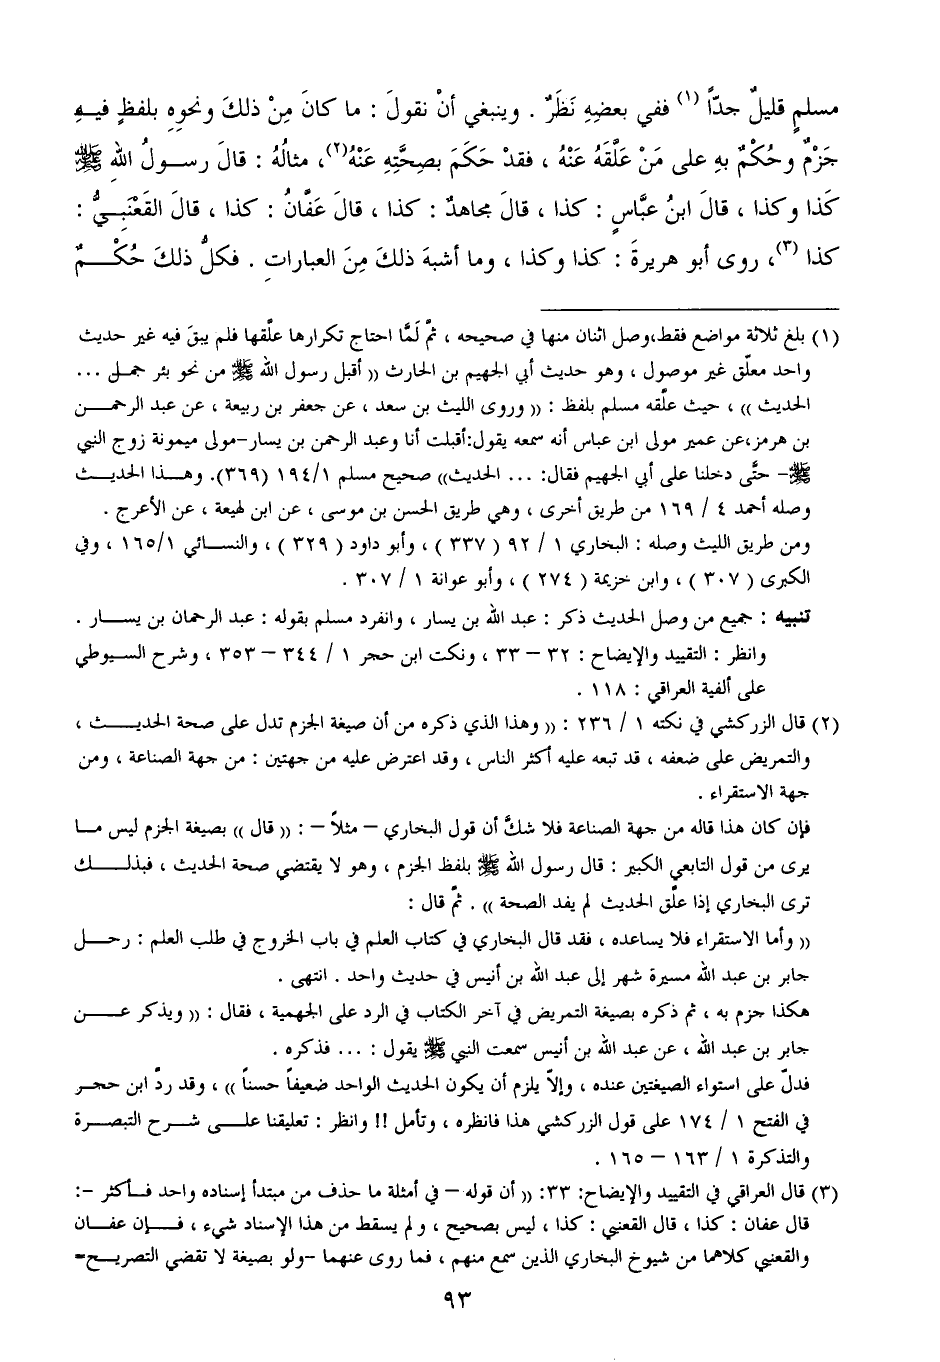 مسلمٍ قليلٌ جدّاً (١) ففي بعضِهِ نَظَرٌ . وينبغي أنْ نقولَ : ما كانَ مِنْ ذلكَ ونحوِهِ بلفظٍ فيـهِ
جَزْمٌ وحُكْمٌ بهِ على مَنْ عَلَّقَهُ عَنْهُ ، فقدْ حَكَمَ بصحَّتِهِ عَنْهُ(٢)، مثالُهُ : قالَ رسـولُ اللهِ ﷺ
كَذا وكذا ، قالَ ابنُ عبَّاسٍ : كذا ، قالَ مجاهدٌ : كذا ، قالَ عَفَّانُ : كذا ، قالَ القَعْنَبِـيُّ :
كذا (٣)، روى أبو هريرةَ : كذا وكذا ، وما أشبهَ ذلكَ مِنَ العباراتِ . فكلُّ ذلكَ حُكْـــمٌ
(١) بلغ ثلاثة مواضع فقط،وصل اثنان منها في صحيحه ، ثمّ لَمَّا احتاج تكرارها علّقها فلم يبقَ فيه غير حديث
واحد معلّق غير موصول ، وهو حديث أبي الجهيم بن الحارث (( أقبل رسول الله ﷺ من نحو بئر جمـل ...
الحديث )) ، حيث علّقه مسلم بلفظ : (( وروى الليث بن سعد ، عن جعفر بن ربيعة ، عن عبد الرحمـــن
بن هرمز،عن عمير مولى ابن عباس أنه سمعه يقول:أقبلت أنا وعبد الرحمن بن يسار-مولى ميمونة زوج النبي
ﷺ- حتَّى دخلنا على أبي الجهيم فقال: ... الحديث)) صحيح مسلم ١٩٤/١ (٣٦٩). وهــذا الحديـــث
وصله أحمد ٤ / ١٦٩ من طريق أخرى ، وهي طريق الحسن بن موسى ، عن ابن لهيعة ، عن الأعرج .
ومن طريق الليث وصله : البخاري ١ / ٩٢ ( ٣٣٧ ) ، وأبو داود ( ٣٢٩ ) ، والنسـائي ١٦٥/١ ، وفي
الكبرى ( ٣٠٧ ) ، وابن خزيمة ( ٢٧٤ ) ، وأبو عوانة ١ / ٣٠٧ .
تنبيه : جميع من وصل الحديث ذكر : عبد الله بن يسار ، وانفرد مسلم بقوله : عبد الرحمان بن يســـار .
وانظر : التقييد والإيضاح : ٣٢ – ٣٣ ، ونكت ابن حجر ١ / ٣٤٤ – ٣٥٣ ، وشرح السـيوطي
على ألفية العراقي : ١١٨ .
(٢) قال الزركشي في نكته ١ / ٢٣٦ : (( وهذا الذي ذكره من أن صيغة الجزم تدل على صحة الحديـــث ،
والتمريض على ضعفه ، قد تبعه عليه أكثر الناس ، وقد اعترض عليه من جهتين : من جهة الصناعة ، ومن
جهة الاستقراء .
فإن كان هذا قاله من جهة الصناعة فلا شكَّ أن قول البخاري – مثلاً – : (( قال )) بصيغة الجزم ليس مــا
يرى من قول التابعي الكبير : قال رسول الله ﷺ بلفظ الجزم ، وهو لا يقتضي صحة الحديث ، فبذلـــك
ترى البخاري إذا علّق الحديث لم يفد الصحة )) . ثمّ قال :
(( وأما الاستقراء فلا يساعده ، فقد قال البخاري في كتاب العلم في باب الخروج في طلب العلم : رحـــل
جابر بن عبد الله مسيرة شهر إلى عبد الله بن أنيس في حديث واحد . انتهى .
هكذا جزم به ، ثم ذكره بصيغة التمريض في آخر الكتاب في الرد على الجهمية ، فقال : (( ويذكر عـــن
جابر بن عبد الله ، عن عبد الله بن أنيس سمعت النبي ﷺ يقول : ... فذكره .
فدلّ على استواء الصيغتين عنده ، وإلاّ يلزم أن يكون الحديث الواحد ضعيفاً حسناً )) ، وقد ردّ ابن حجـر
في الفتح ١ / ١٧٤ على قول الزركشي هذا فانظره ، وتأمل !! وانظر : تعليقنا علــى شـــرح التبصـــرة
والتذكرة ١ / ١٦٣ – ١٦٥ .
(٣) قال العراقي في التقييد والإيضاح: ٣٣: (( أن قوله – في أمثلة ما حذف من مبتدأ إسناده واحد فـأكثر -:
قال عفان : كذا ، قال القعنبي : كذا ، ليس بصحيح ، ولم يسقط من هذا الإسناد شيء ، فـــإن عفـــان
والقعنبي كلاهما من شيوخ البخاري الذين سمع منهم ، فما روى عنهما -ولو بصيغة لا تقضي التصريـح-
٩٣